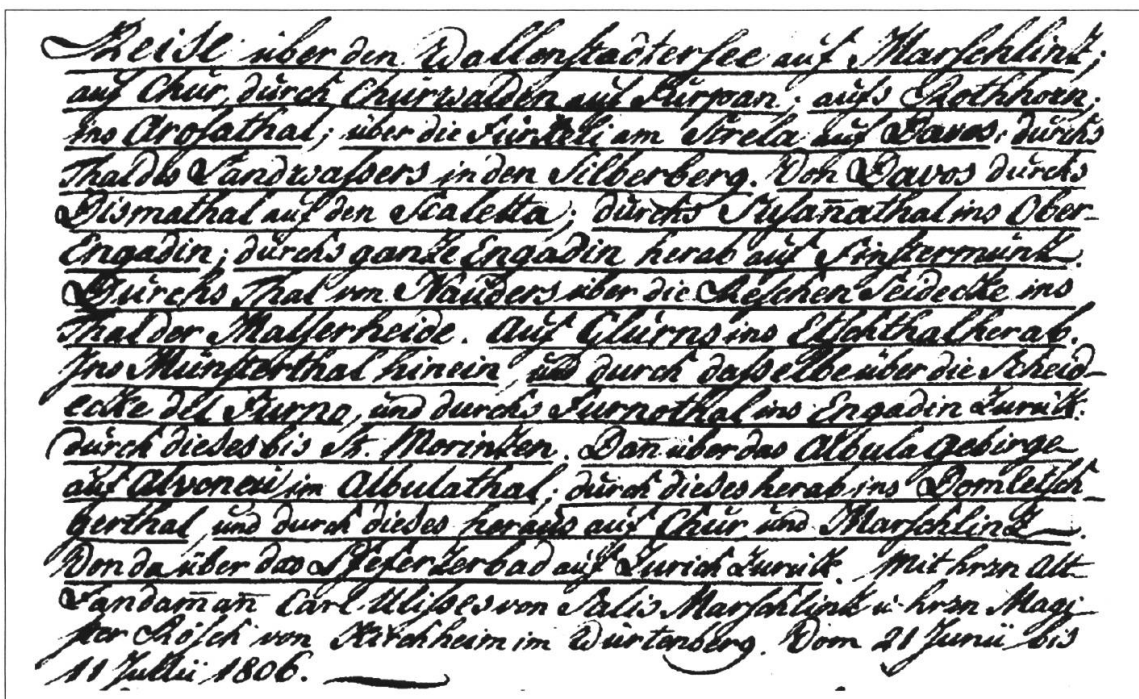 Reise über den Wallenstadtersee auf Marschlinz;
auf Chur, durch Churwalden auf Parpan; aufs Rothhorn;
ins Arosathal; über die Fürkeli am Strela auf Davos; durchs
Thal des Landwassers in den Silberberg. Von Davos durchs
Dismathal auf den Scaletta; durchs Susan̄athal ins Ober-
Engadin; durchs ganze Engadin herab auf Finstermünz.
Durchs Thal von Nauders über die Reschen Seidecke ins
Thal der Malserheide. Auf Glurns ins Etschthal herab.
Ins Münsterthal hinein, und durch dasselbe über die Scheid-
ecke del Furno, und durchs Furnothal ins Engadin zurük.
durch dieses bis St. Morinzen. Dan̄ über das Albula gebirge
auf Alvoneu im Albulathal; durch dieses herab ins Domletsch-
gerthal, und durch dieses heraus auf Chur und Marschlinz.
Von da über das Pfeferzerbad auf Zürich zurük. Mit hrzn Alt-
Landam̄an̄ Carl Ulisses von Salis Marschlinz u hrzn Magi-
ster Rösch von Kirchheim im Würtenberg. Vom 21 Junii bis
11 Jullii 1806.